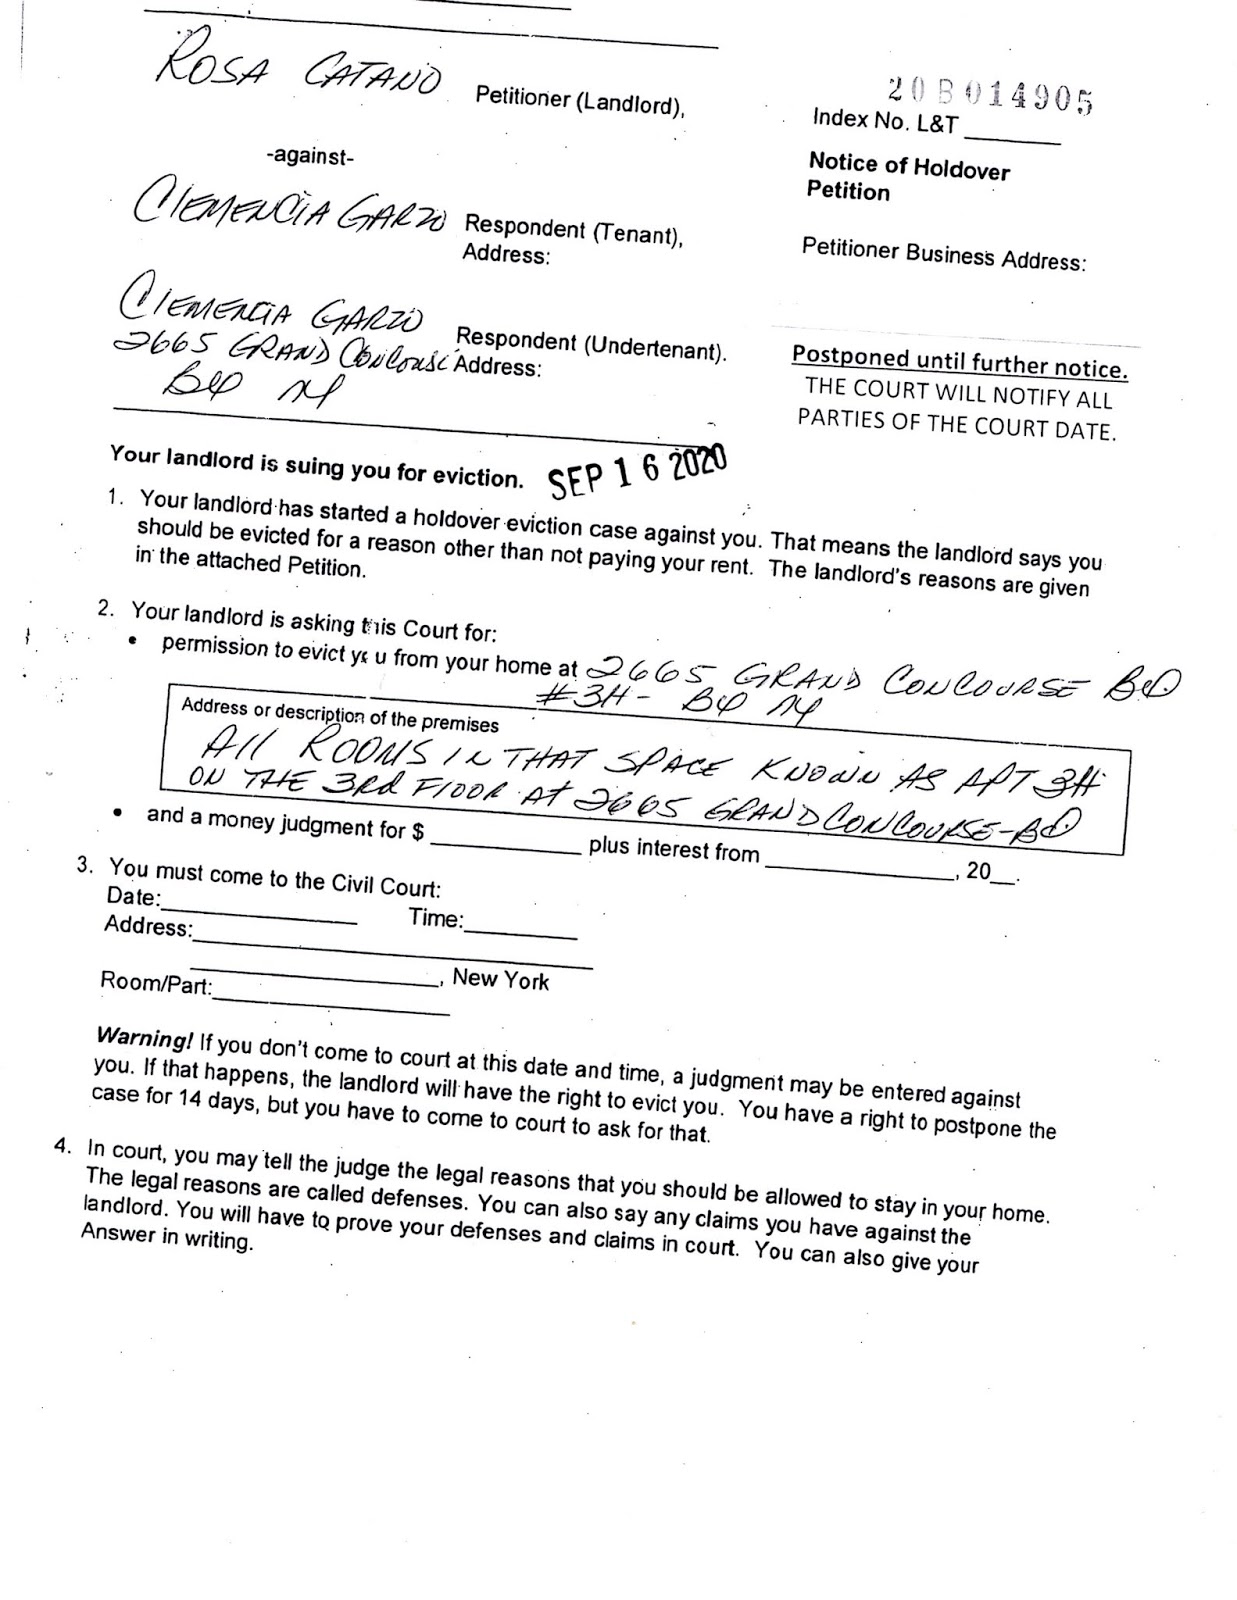 ROSA CATANO Petitioner (Landlord),
20B014905
Index No. L&T
-against-
Notice of Holdover
Petition
CLEMENCIA GARZO Respondent (Tenant),
Address:
Petitioner Business Address:
CLEMENCIA GARZO
Respondent (Undertenant).
2665 GRAND CONCOURSE Address:
BX NY
Postponed until further notice.
THE COURT WILL NOTIFY ALL
PARTIES OF THE COURT DATE.
Your landlord is suing you for eviction. SEP 16 2020
1. Your landlord has started a holdover eviction case against you. That means the landlord says you
should be evicted for a reason other than not paying your rent. The landlord's reasons are given
in the attached Petition.
2. Your landlord is asking this Court for:
• permission to evict you from your home at 2665 GRAND CONCOURSE BX
#3H- BX NY
Address or description of the premises
All ROOMS IN THAT SPACE KNOWN AS APT 3H
ON THE 3Rd FlOOR AT 2665 GRAND CONCOURSE-BX
• and a money judgment for $ plus interest from , 20__.
3. You must come to the Civil Court:
Date: Time:
Address:
, New York
Room/Part:
Warning! If you don't come to court at this date and time, a judgment may be entered against
you. If that happens, the landlord will have the right to evict you. You have a right to postpone the
case for 14 days, but you have to come to court to ask for that.
4. In court, you may tell the judge the legal reasons that you should be allowed to stay in your home.
The legal reasons are called defenses. You can also say any claims you have against the
landlord. You will have to prove your defenses and claims in court. You can also give your
Answer in writing.